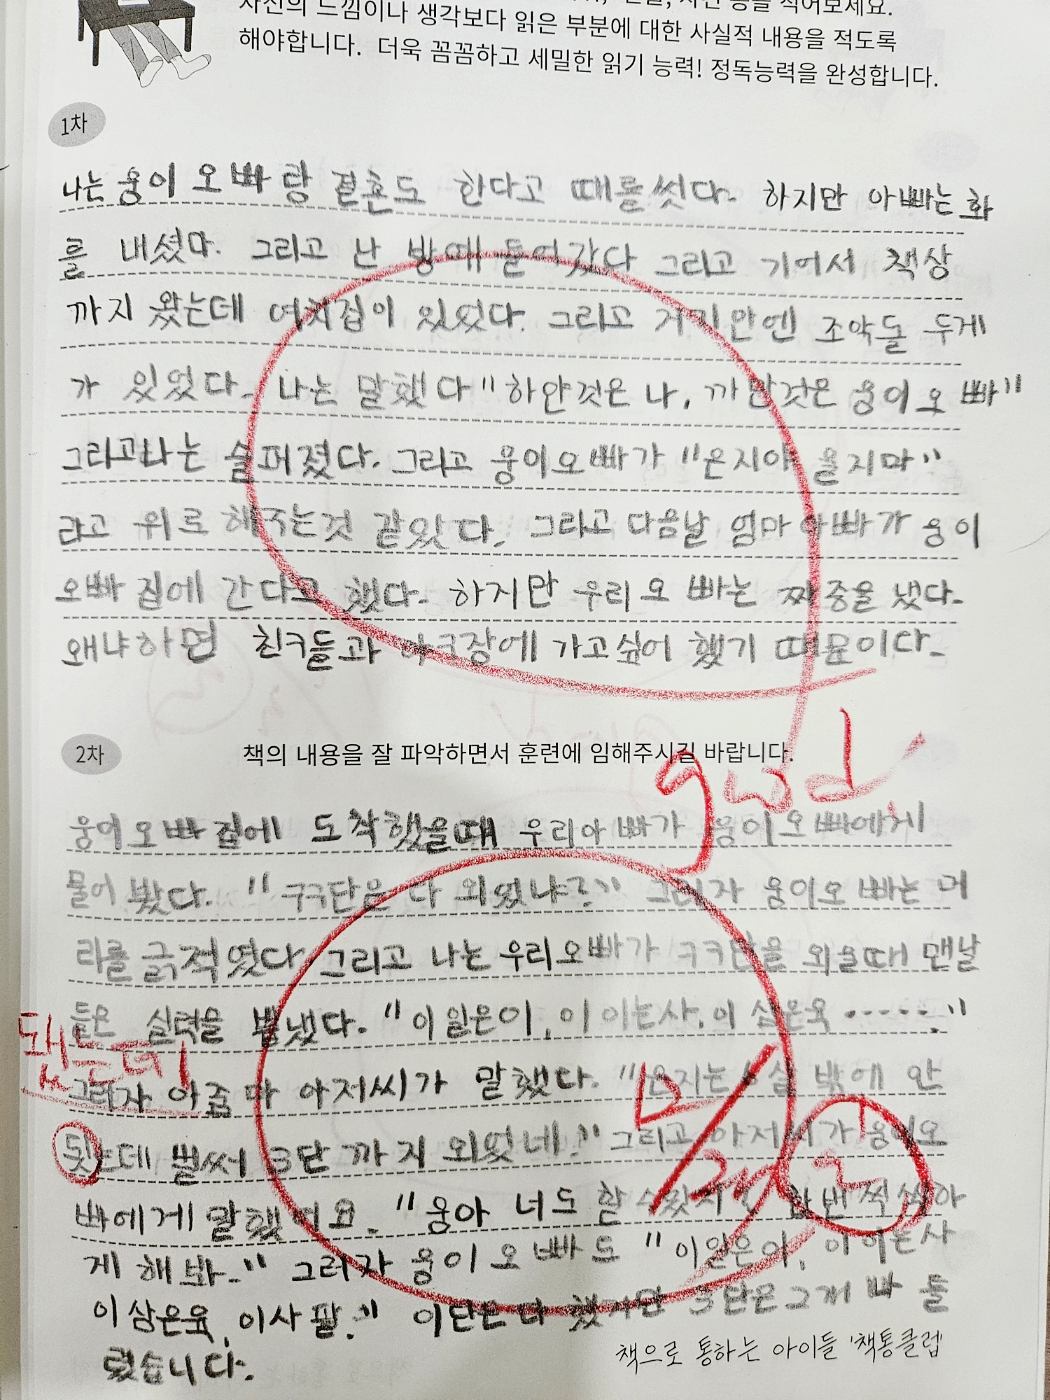 자신의 느낌이나 생각보다 읽은 부분에 대한 사실적 내용을 적도록
해야합니다. 더욱 꼼꼼하고 세밀한 읽기 능력! 정독능력을 완성합니다.
1차
나는 웅이 오빠 랑 결혼도 한다고 때를 썻다. 하지만 아빠는 화
를 내셨다. 그리고 난 방에 들어갔다 그리고 기어서 책상
까지 왔는데 여치집이 있었다. 그리고 거기안엔 조약돌 두게
가 있었다. 나는 말했다 "하얀것은 나, 까만것은 웅이오빠"
그리고나는 슬퍼졌다. 그리고 웅이오빠가 "은지야 울지마"
라고 위로 해주는것 같았다. 그리고 다음날 엄마 아빠가 웅이
오빠 집에 간다고 했다. 하지만 우리 오빠는 짜증을 냈다.
왜냐하면 친구들과 야구장에 가고싶어 했기 때문이다.
2차
책의 내용을 잘 파악하면서 훈련에 임해주시길 바랍니다.
good
웅이오빠집에 도착했을때 우리아빠가 웅이오빠에게
물어 봤다. "구구단은 다 외었냐?" 그러자 웅이오빠는 머
리를 긁적였다 그리고 나는 우리오빠가 구구단을 외울때 맨날
들은 실력을 뽐냈다. "이일은이, 이이는사, 이 삼은육 ······"
됐는데
그러자 아줌마 아저씨가 말했다. "은지는 6살 밖에 안
됫는데 벌써 3단 까지 외었네." 그리고 아저씨가 웅이오
빠에게 말했어요. "웅아 너도 할 수있지? 한번
게 해봐." 그러자 웅이오빠도 "이일은이, 이이는사
이삼은육, 이사팔." 이단은다 했지만 3단은그게
렸습니다.
책으로 통하는 아이들 '책통클럽'